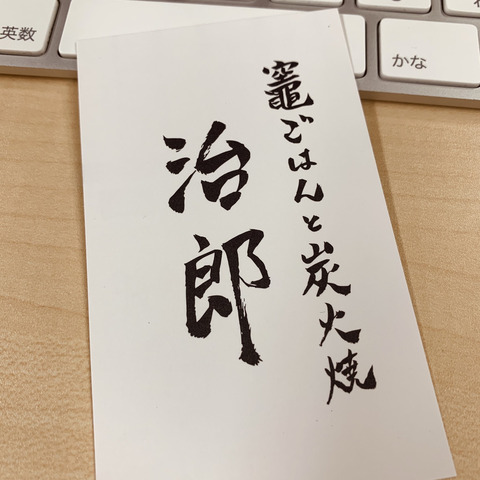 竈ごはんと炭火焼
治郎
英数
かな